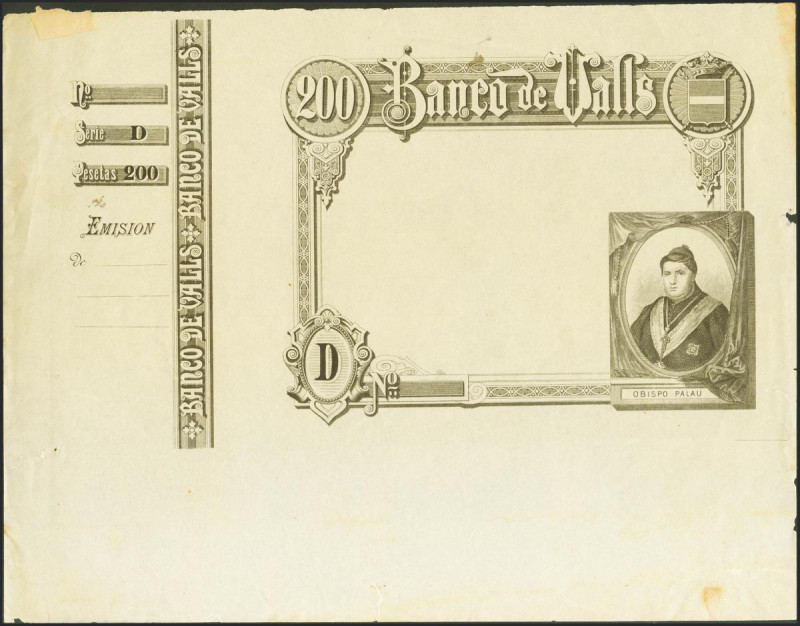 Nº
Serie D
Pesetas 200
EMISION
De
BANCO DE VALLS BANCO DE VALLS
200 Banco de Valls
D
Nº
OBISPO PALAU